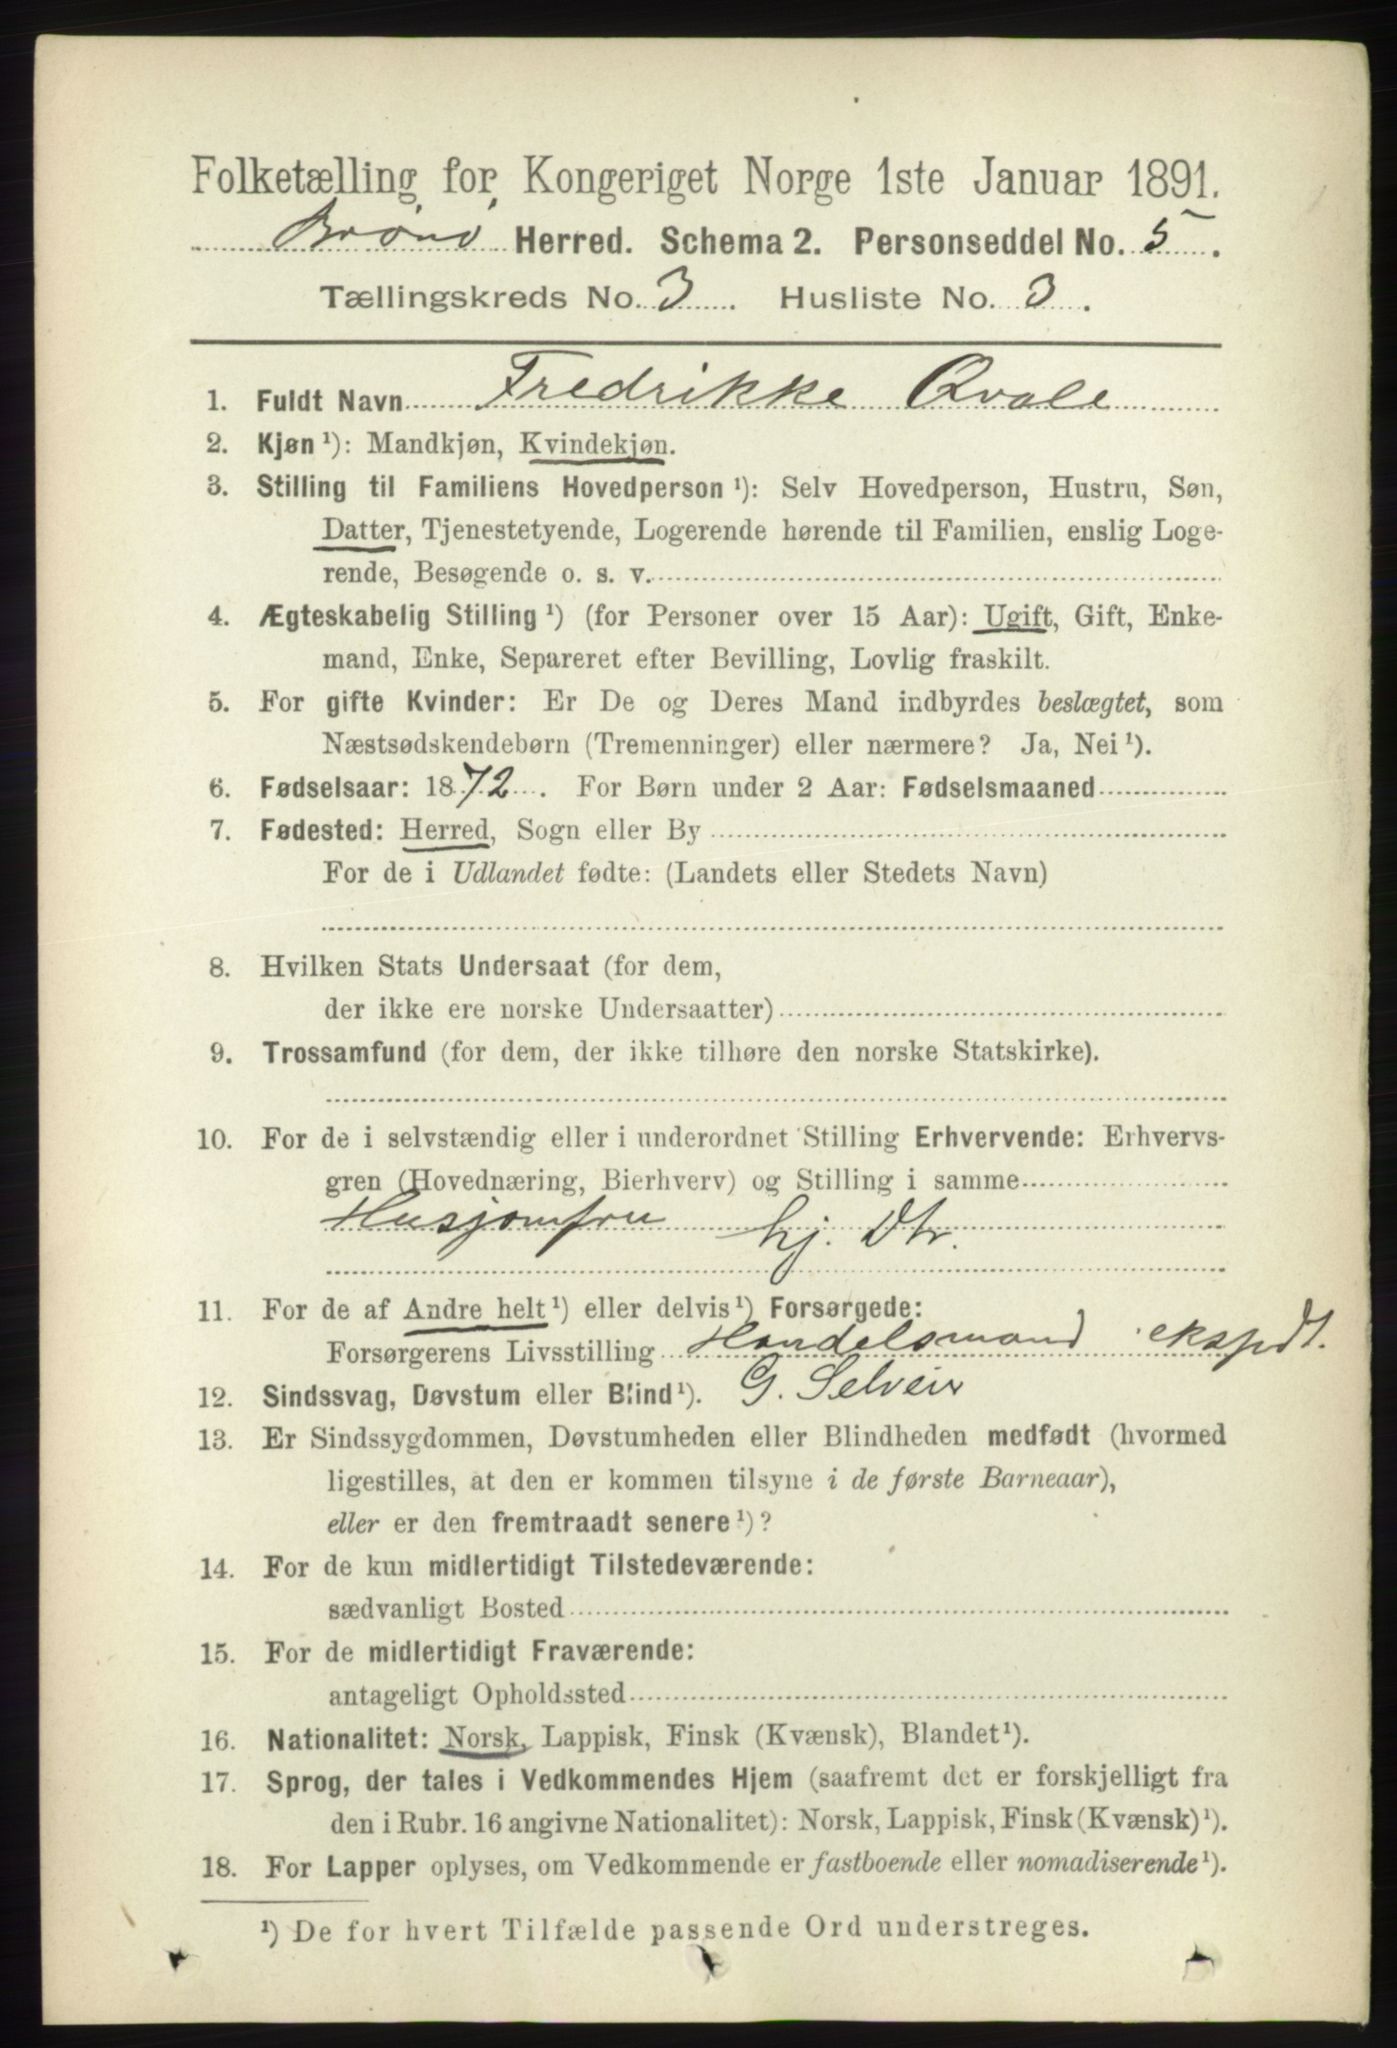 Folketælling for Kongeriget Norge 1ste Januar 1891.
Brønø Herred. Schema 2. Personseddel No. 5.
Tællingskreds No. 3. Husliste No. 3.
1. Fuldt Navn Fredrikke Qvale
2. Kjøn ¹): Mandkjøn, Kvindekjøn.
3. Stilling til Familiens Hovedperson ¹): Selv Hovedperson, Hustru, Søn,
Datter, Tjenestetyende, Logerende hørende til Familien, enslig Loge-
rende, Besøgende o. s. v.
4. Ægteskabelig Stilling ¹) (for Personer over 15 Aar): Ugift, Gift, Enke-
mand, Enke, Separeret efter Bevilling, Lovlig fraskilt.
5. For gifte Kvinder: Er De og Deres Mand indbyrdes beslægtet, som
Næstsødskendebørn (Tremenninger) eller nærmere? Ja, Nei ¹).
6. Fødselsaar: 1872. For Børn under 2 Aar: Fødselsmaaned
7. Fødested: Herred, Sogn eller By
For de i Udlandet fødte: (Landets eller Stedets Navn)
8. Hvilken Stats Undersaat (for dem,
der ikke ere norske Undersaatter)
9. Trossamfund (for dem, der ikke tilhøre den norske Statskirke).
10. For de i selvstændig eller i underordnet Stilling Erhvervende: Erhvervs-
gren (Hovednæring, Bierhverv) og Stilling i samme
Husjomfru hj. Dtr.
11. For de af Andre helt ¹) eller delvis ¹) Forsørgede:
Forsørgerens Livsstilling Handelsmand ekspdt.
12. Sindssvag, Døvstum eller Blind ¹). G. Selveier
13. Er Sindssygdommen, Døvstumheden eller Blindheden medfødt (hvormed
ligestilles, at den er kommen tilsyne i de første Barneaar),
eller er den fremtraadt senere ¹)?
14. For de kun midlertidigt Tilstedeværende:
sædvanligt Bosted
15. For de midlertidigt Fraværende:
antageligt Opholdssted
16. Nationalitet: Norsk, Lappisk, Finsk (Kvænsk), Blandet ¹).
17. Sprog, der tales i Vedkommendes Hjem (saafremt det er forskjelligt fra
den i Rubr. 16 angivne Nationalitet): Norsk, Lappisk, Finsk (Kvænsk) ¹).
18. For Lapper oplyses, om Vedkommende er fastboende eller nomadiserende ¹).
¹) De for hvert Tilfælde passende Ord understreges.